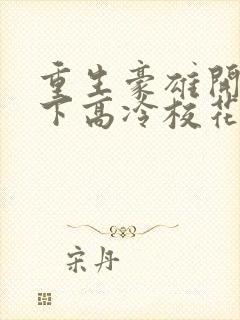 重生豪雄開
下高冷校花
宋丹